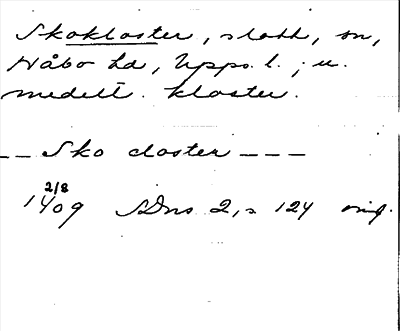 Skokloster, slott, sn,
Håbo hd, Upps. l. ; u.
medelt. kloster.
-- Sko closter ---
2/8
1409 SDns 2, s 124 orig.